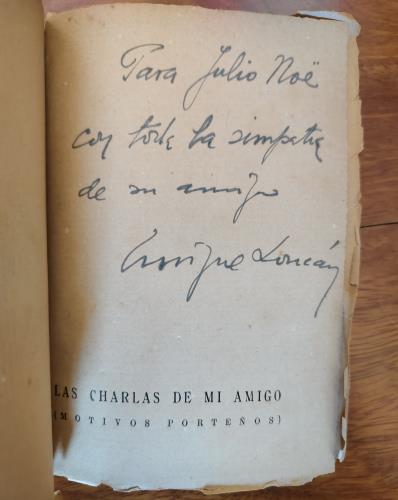 Para Julio Noë
con toda la simpatía
de su amigo
Enrique Loncán
LAS CHARLAS DE MI AMIGO
(MOTIVOS PORTEÑOS)